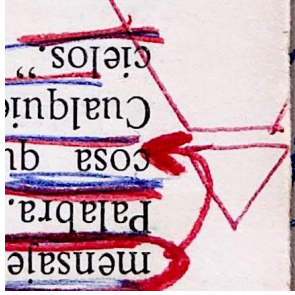 mensaje
Palabra.
cosa qu
Cualquie
cielos.”